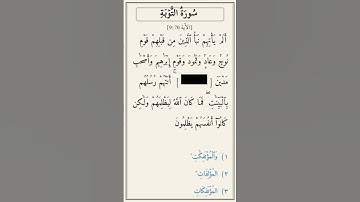 سُورَةُ التَّوْبَةِ
[الآية 70 :9]
أَلَمْ يَأْتِهِمْ نَبَأُ ٱلَّذِينَ مِن قَبْلِهِمْ قَوْمِ
نُوحٍ وَعَادٍ وَثَمُودَ وَقَوْمِ إِبْرَٰهِيمَ وَأَصْحَٰبِ
مَدْيَنَ [ ] ۚ أَتَتْهُمْ رُسُلُهُم
بِٱلْبَيِّنَٰتِ ۖ فَمَا كَانَ ٱللَّهُ لِيَظْلِمَهُمْ وَلَٰكِن
كَانُوٓا۟ أَنفُسَهُمْ يَظْلِمُونَ
١) وَٱلْمُؤْتَفِكَٰتِ
٢) المُؤْتَلِفَاتِ
٣) المُؤْتَفِكَاتِ